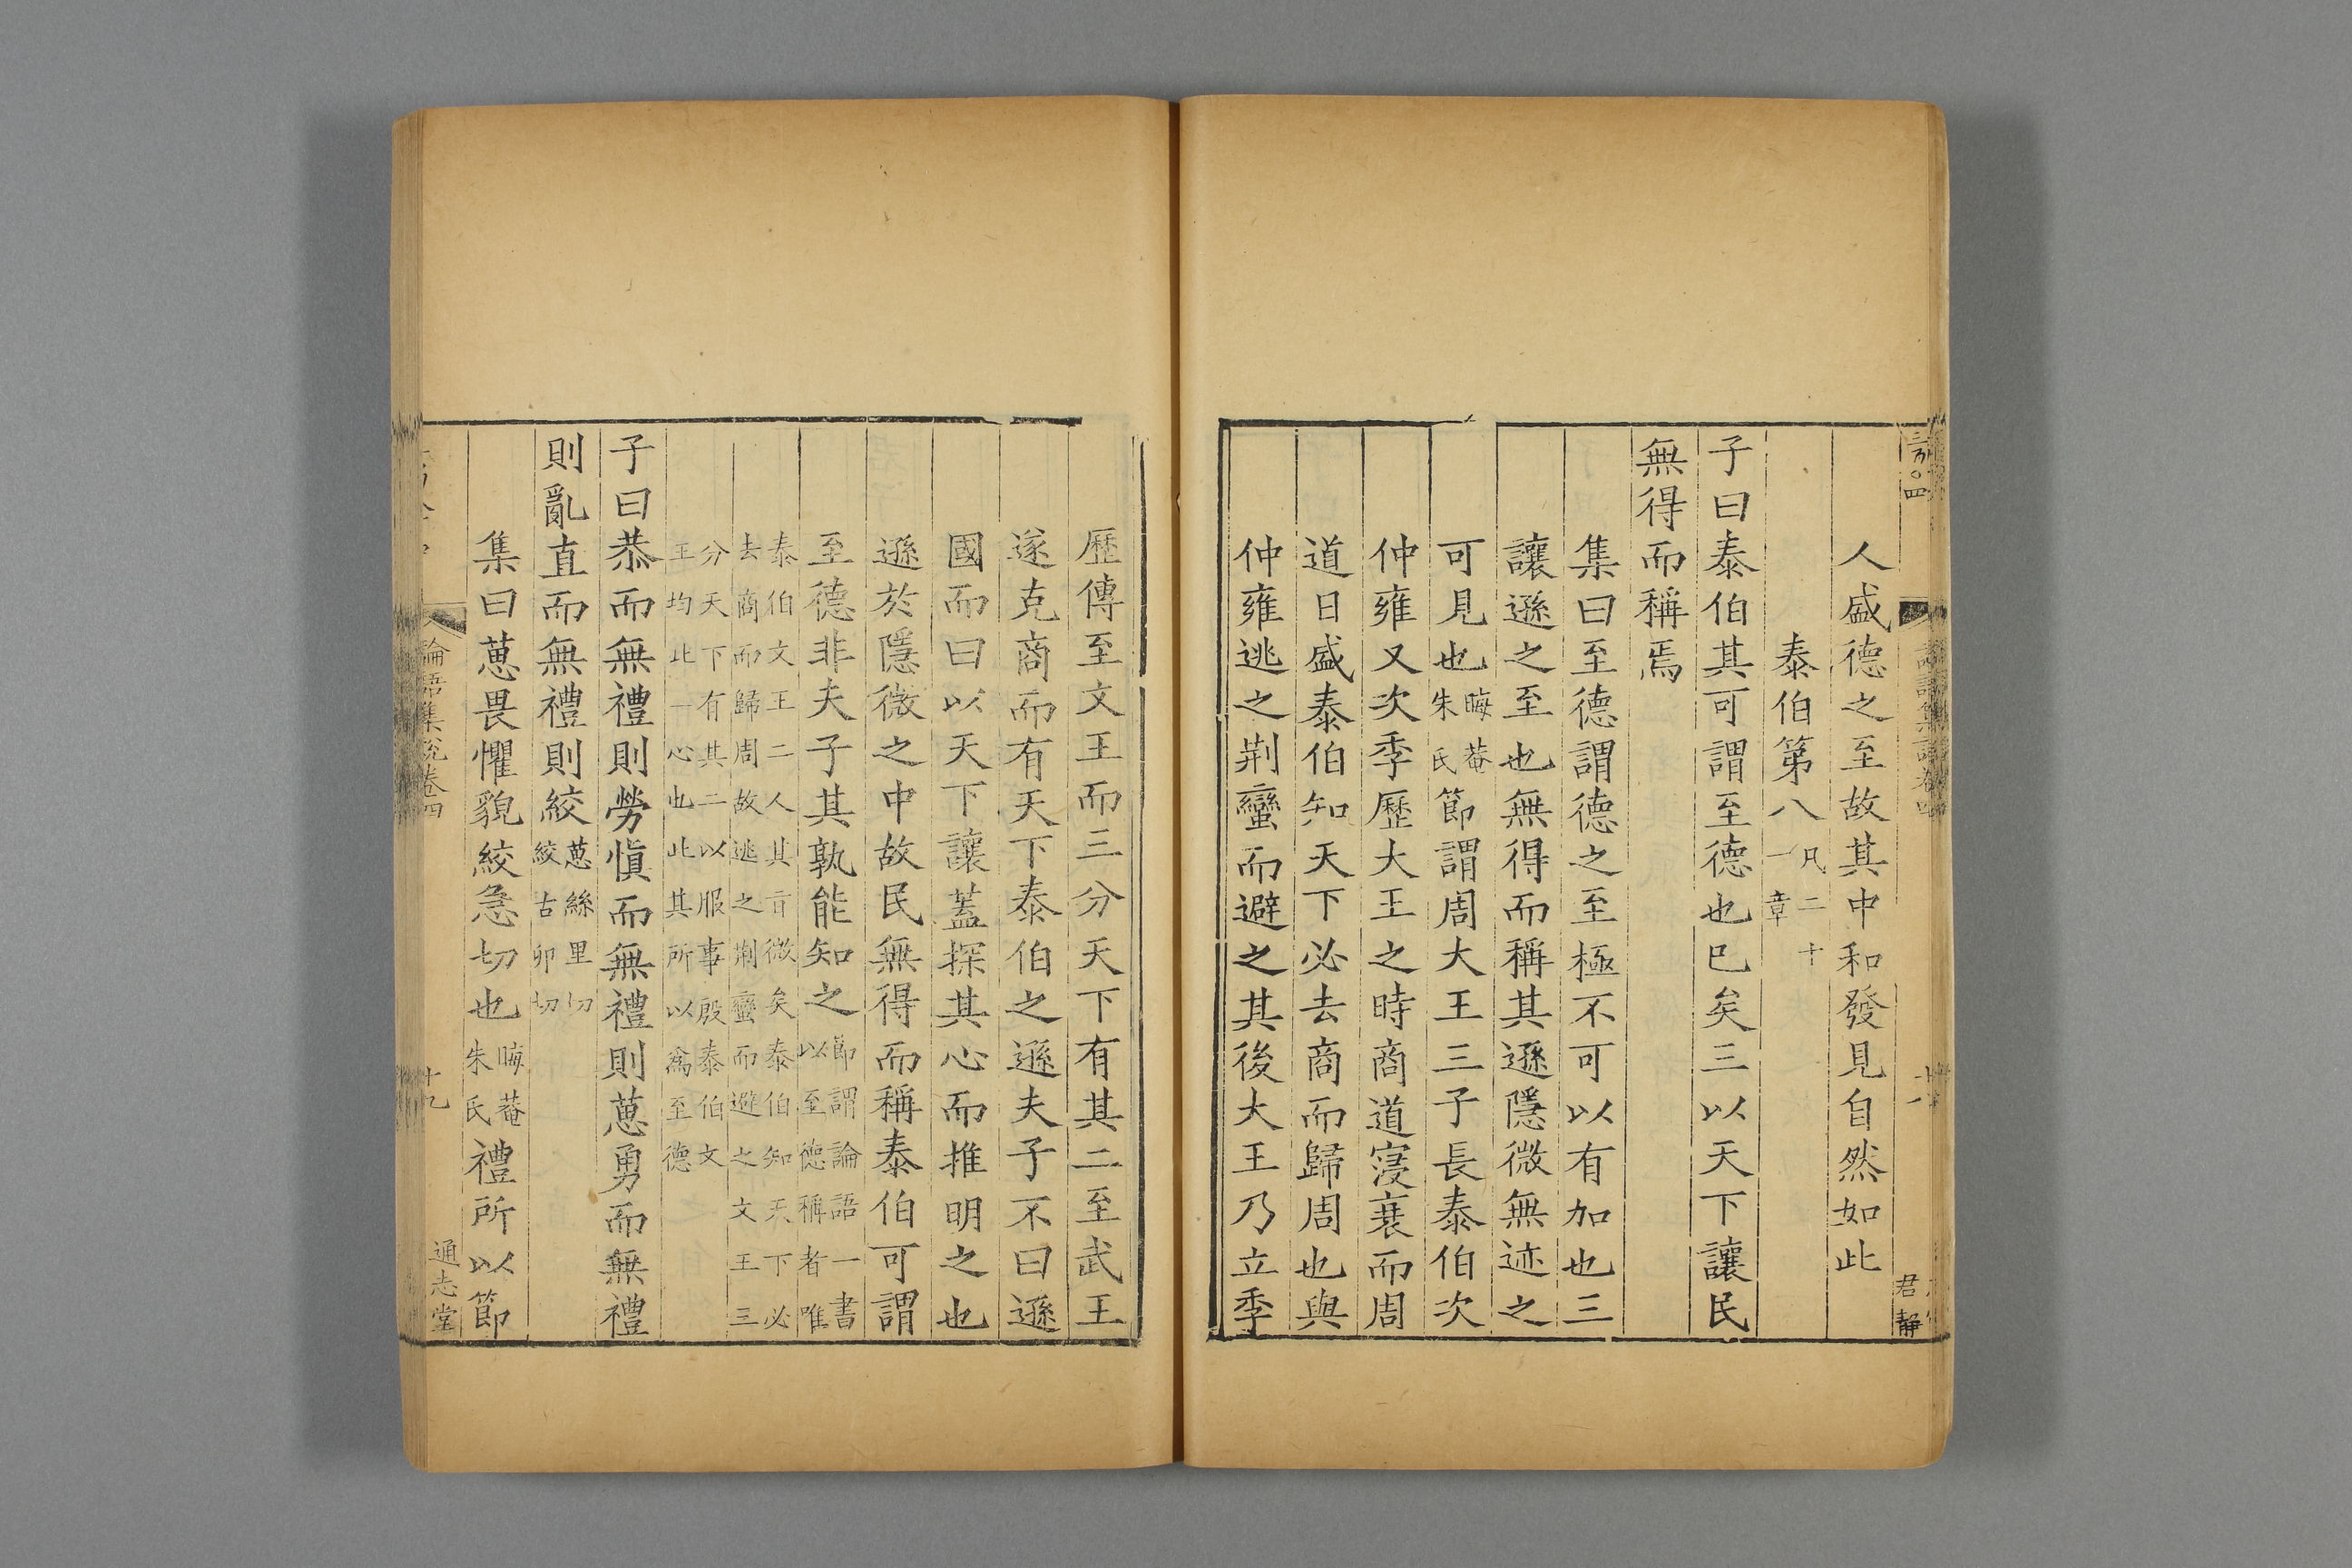 人盛德之至故其中和發見自然如此
泰伯第八凡二十一章
子曰泰伯其可謂至德也已矣三以天下讓民
無得而稱焉
集曰至德謂德之至極不可以有加也三
讓遜之至也無得而稱其遜隱微無迹之
可見也晦菴朱氏節謂周大王三子長泰伯次
仲雍又次季歷大王之時商道寖衰而周
道日盛泰伯知天下必去商而歸周也與
仲雍逃之荆蠻而避之其後大王乃立季
君靜
歷傳至文王而三分天下有其二至武王
遂克商而有天下泰伯之遜夫子不曰遜
國而曰以天下讓蓋探其心而推明之也
遜於隱微之中故民無得而稱泰伯可謂
至德非夫子其孰能知之節謂論語一書以至德稱者唯
泰伯文王二人其言微矣泰伯知天下必去商而歸周故逃之荆蠻而避之文王三
分天下有其二以服事殷泰伯文王均此一心也此其所以爲至德
子曰恭而無禮則勞愼而無禮則葸勇而無禮
則亂直而無禮則絞葸絲里切絞古卯切
集曰葸畏懼貌絞急切也晦菴朱氏禮所以節
論語集說卷四
十九
通志堂